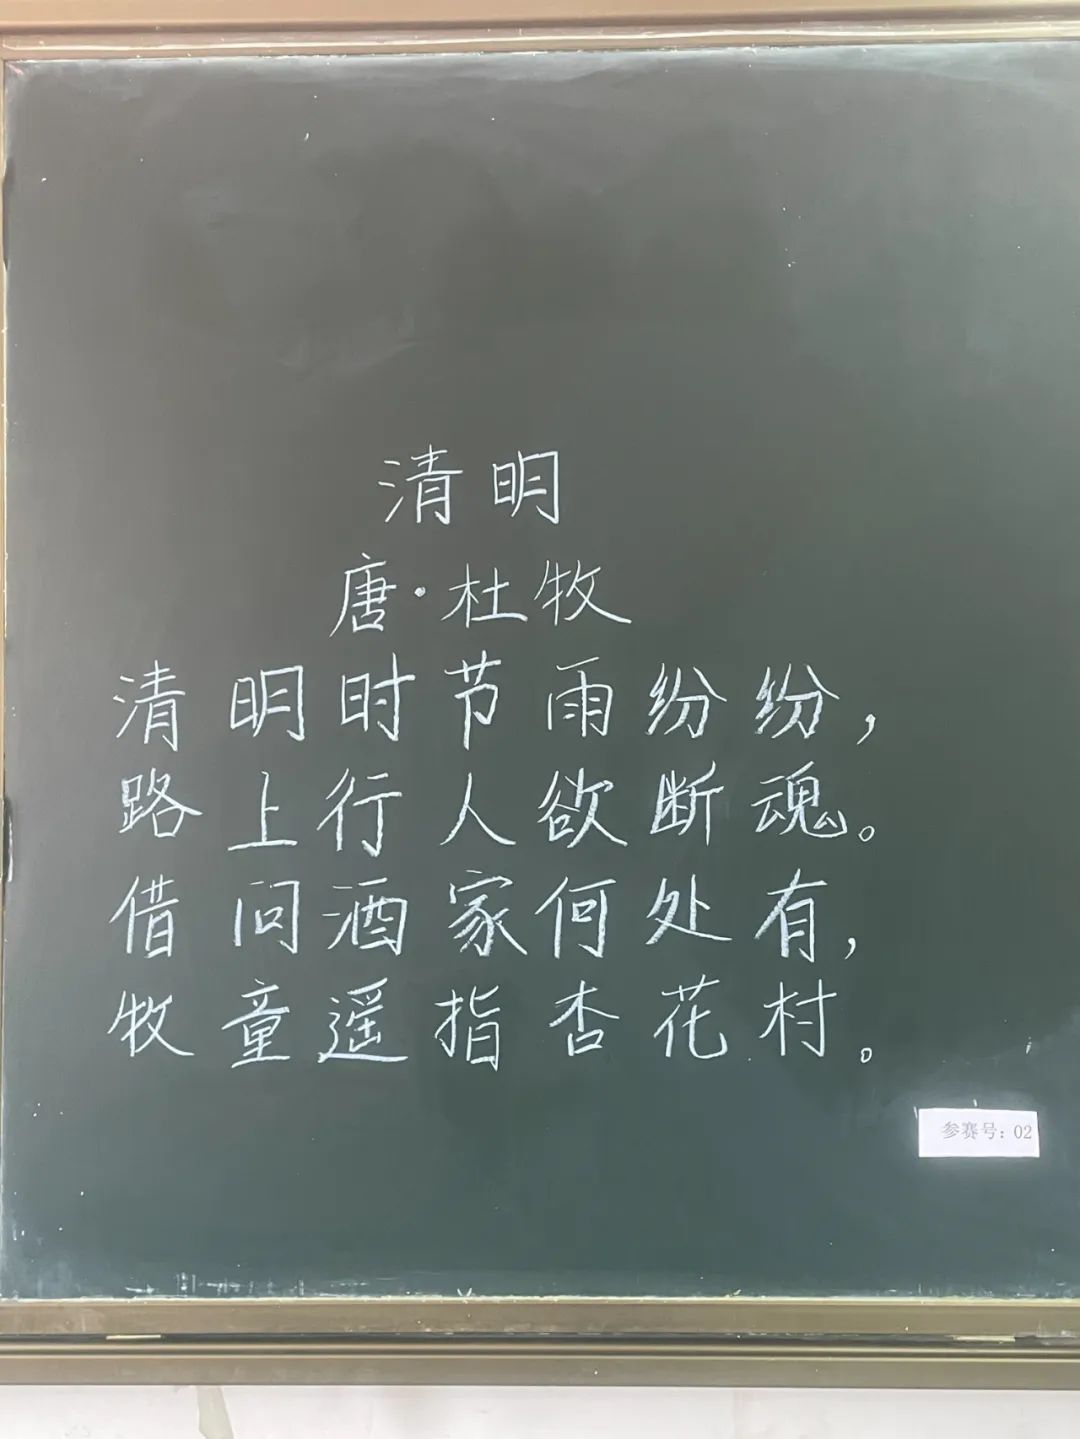 清明
唐·杜牧
清明时节雨纷纷，
路上行人欲断魂。
借问酒家何处有，
牧童遥指杏花村。
参赛号：02